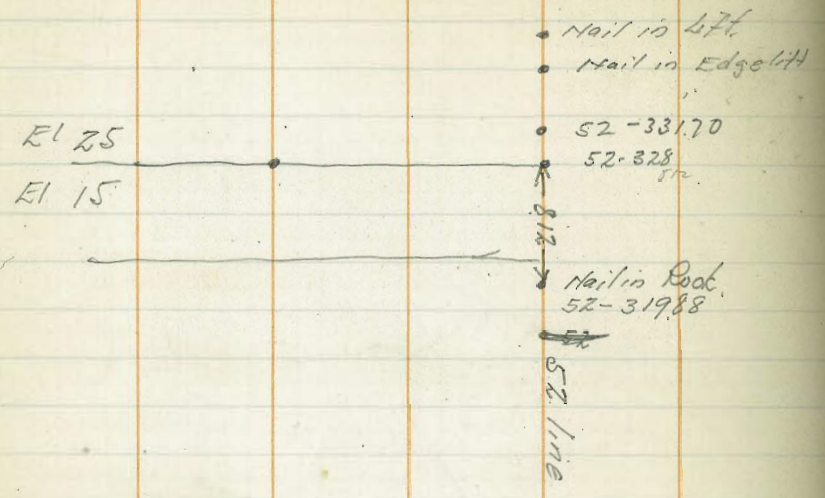 Nail in Lift
Nail in Edge lift
El 25
52-331.70
52-328
El 15
812
Nail in Rock
52-319.88
52
52 line